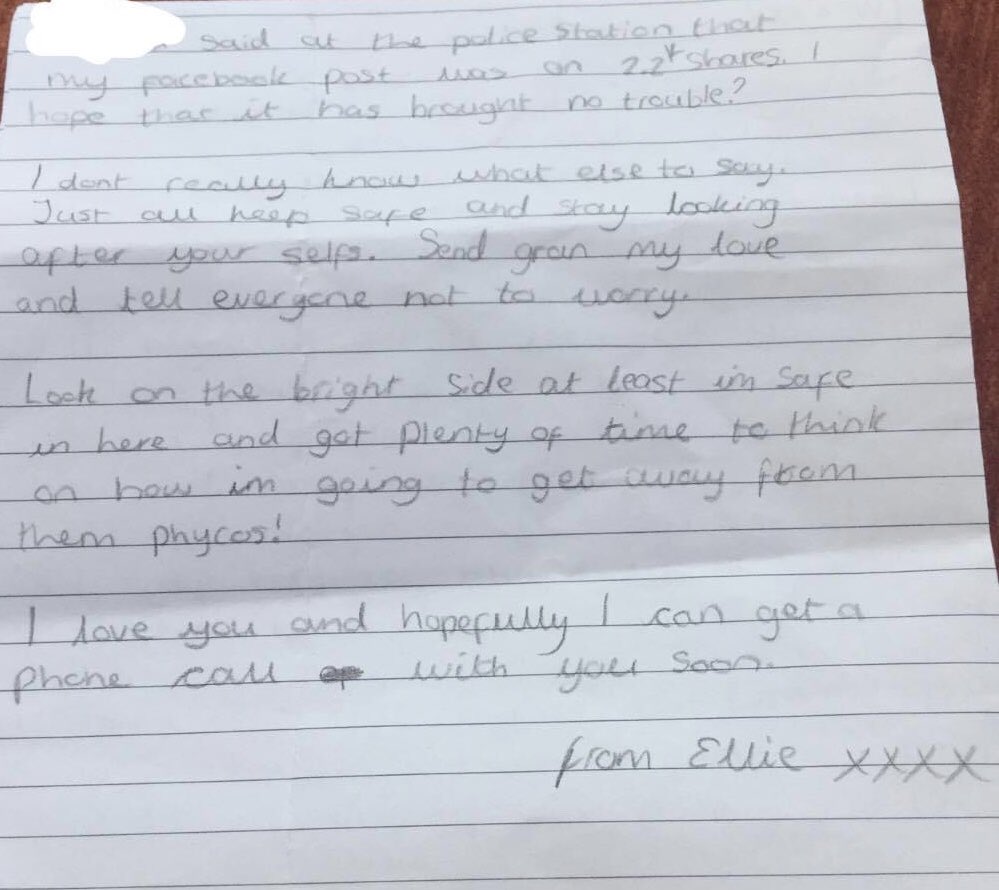 said at the police station that
my facebook post was on 2.2k shares. I
hope that it has brought no trouble?
I dont really know what else to say.
Just all keep safe and stay looking
after your selfs. Send gran my love
and tell everyone not to worry.
Look on the bright side at least im safe
in here and got plenty of time to think
on how im going to get away from
them phycos!
I love you and hopefully I can get a
phone call with you soon.
from Ellie xxxx